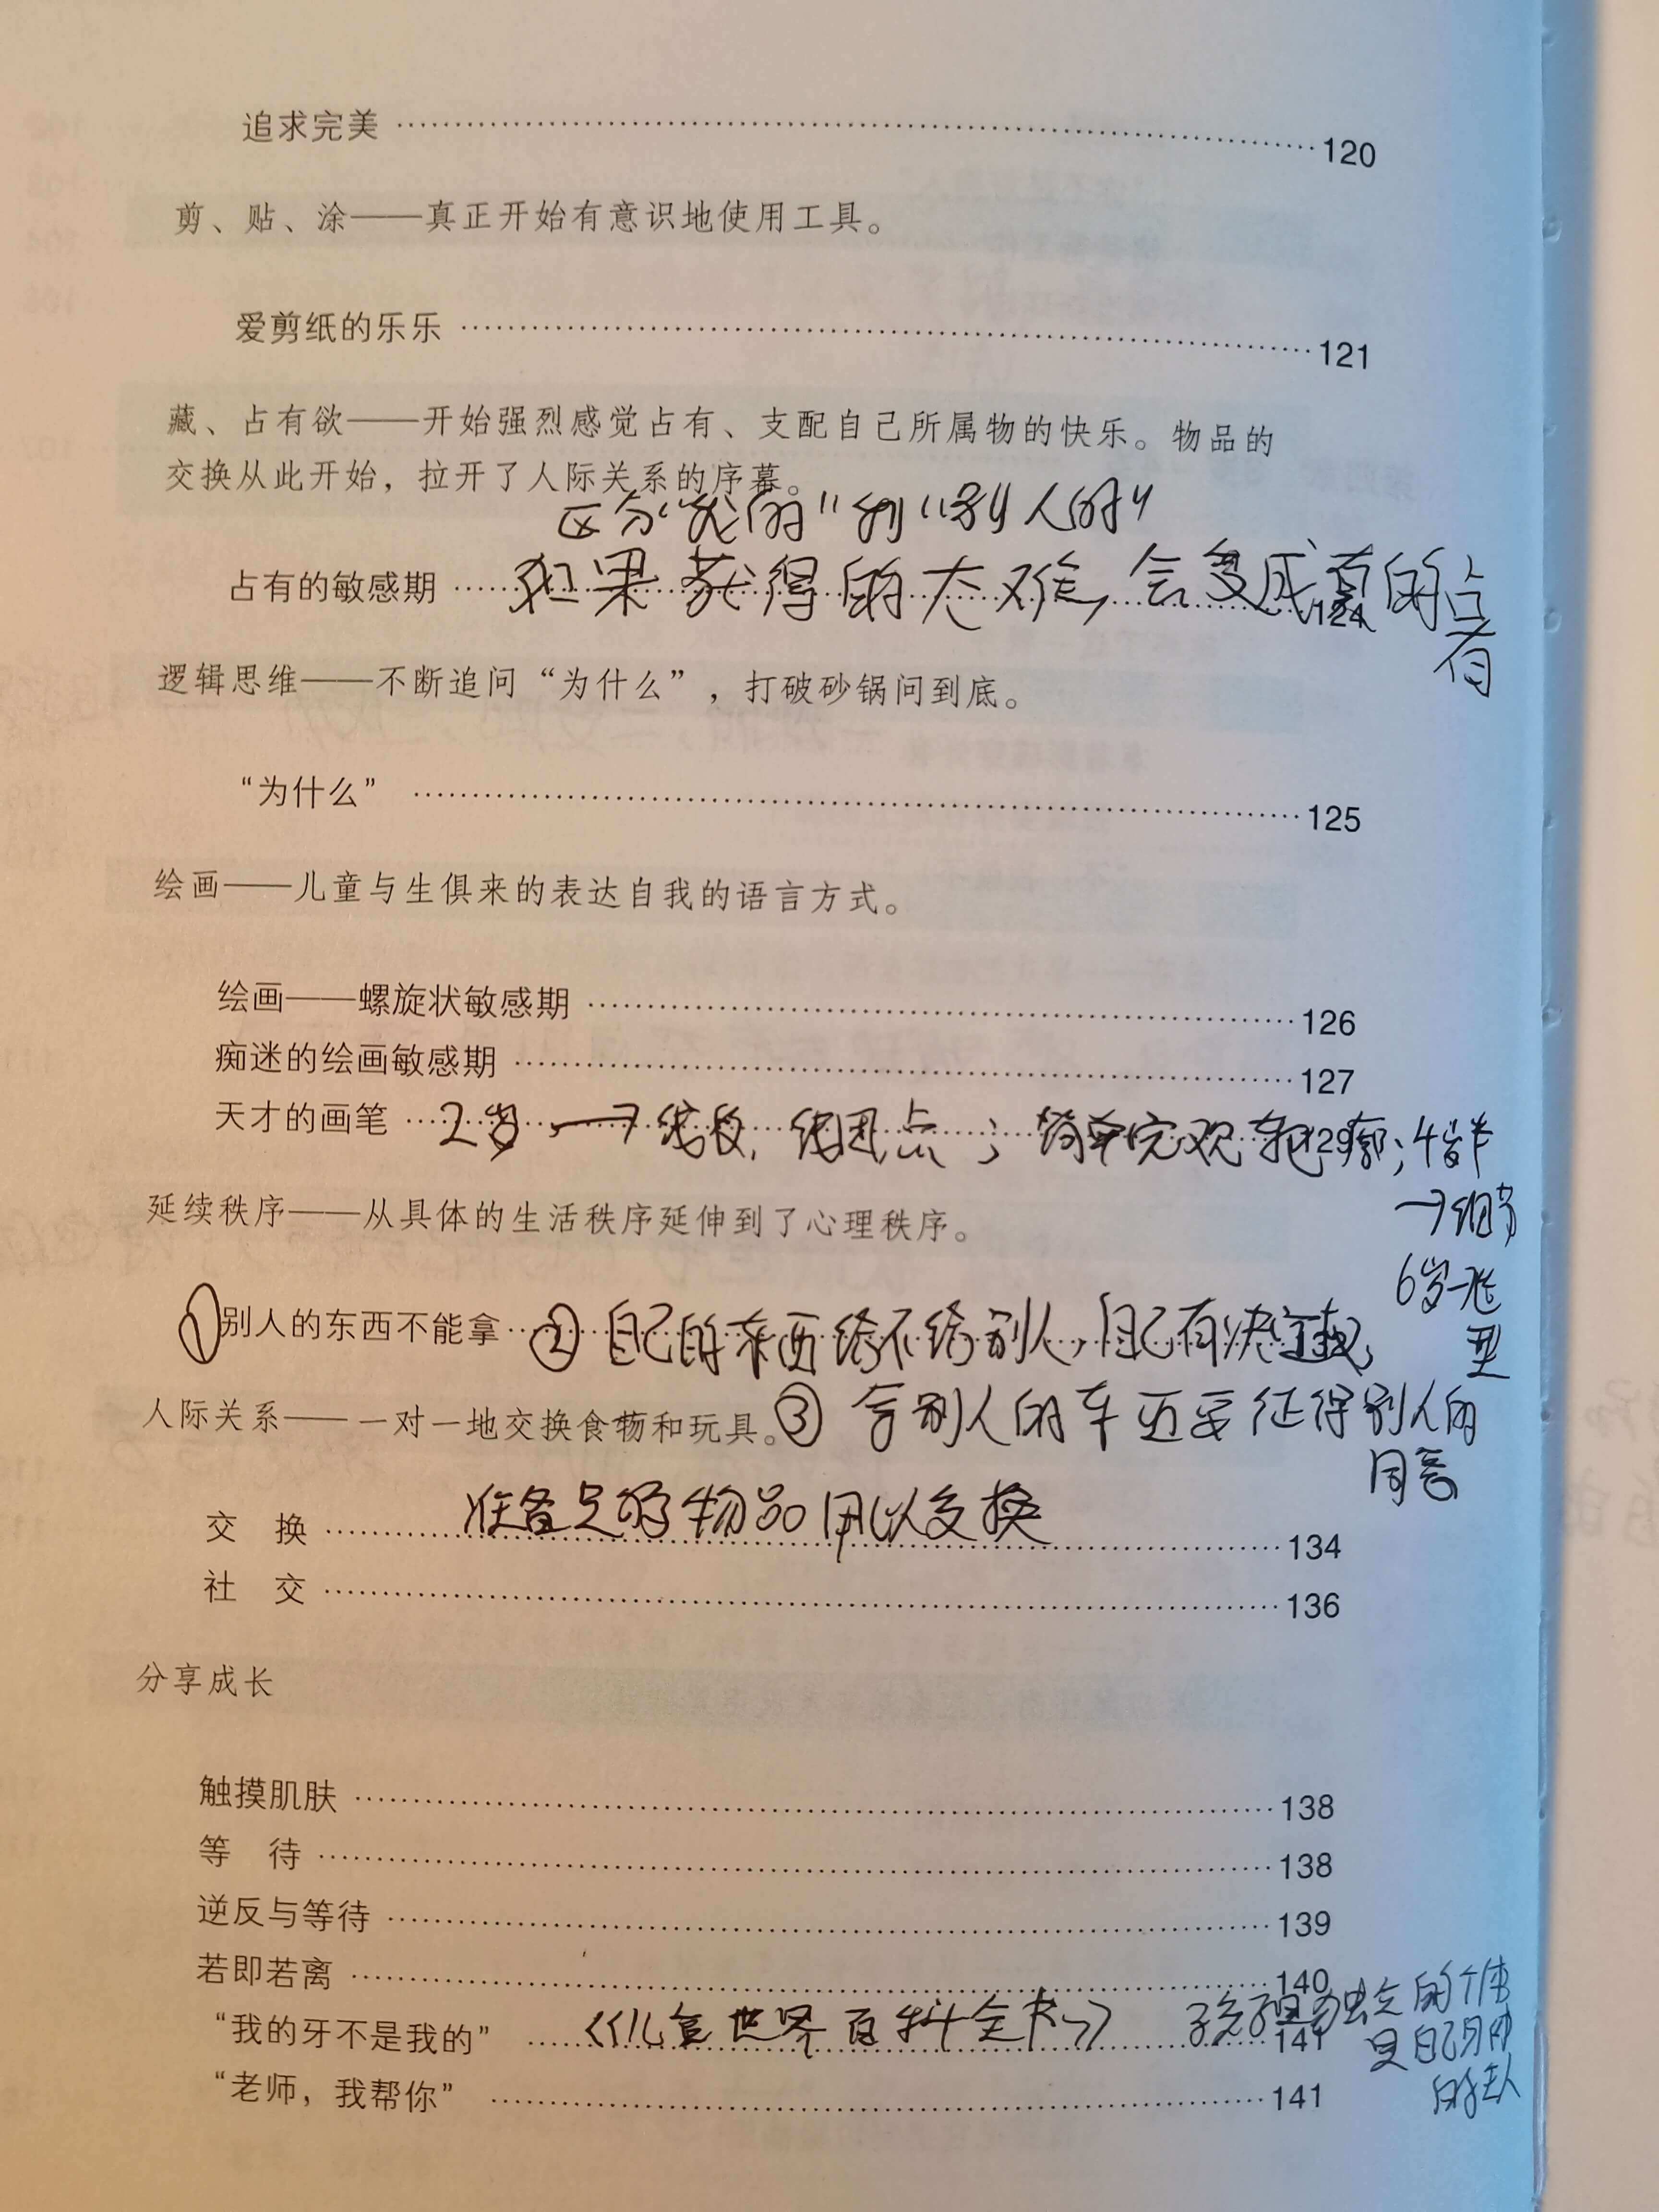 追求完美 ……………………………… 120
剪、贴、涂——真正开始有意识地使用工具。
爱剪纸的乐乐 ……………………………… 121
藏、占有欲——开始强烈感觉占有、支配自己所属物的快乐。物品的
交换从此开始，拉开了人际关系的序幕。
区分“我的”和“别人的”
占有的敏感期 …… 124
如果获得的太难，会变成真的占
有
逻辑思维——不断追问“为什么”，打破砂锅问到底。
“为什么” ……………………………… 125
绘画——儿童与生俱来的表达自我的语言方式。
绘画——螺旋状敏感期 ……………………………… 126
痴迷的绘画敏感期 ……………………………… 127
天才的画笔 …… 129
2岁→线段、线团、点；简单完观轮廓；4岁半
→细节
6岁
型
延续秩序——从具体的生活秩序延伸到了心理秩序。
①别人的东西不能拿 ……
②自己的东西给不给别人，自己有决定权
人际关系——一对一地交换食物和玩具。
③拿别人的东西要征得别人的
同意
准备足够物品用以交换
交 换 ……………………………… 134
社 交 ……………………………… 136
分享成长
触摸肌肤 ……………………………… 138
等 待 ……………………………… 138
逆反与等待 ……………………………… 139
若即若离 ……………………………… 140
“我的牙不是我的” …… 141
《儿童世界百科全书》 孩子是独立的个体
是自己身体
的主人
“老师，我帮你” ……………………………… 141